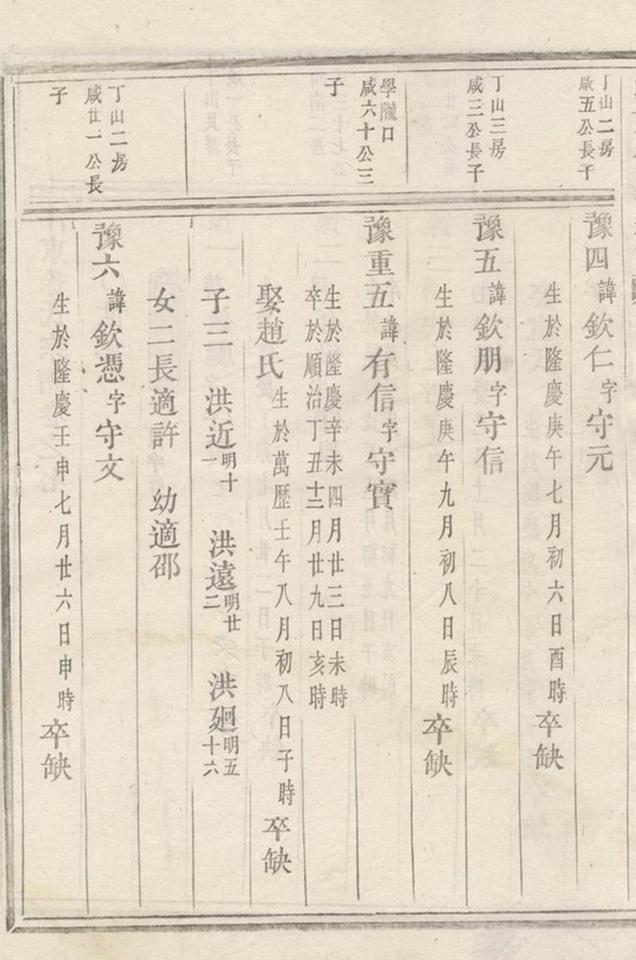 丁山二房
咸五公長子
豫四諱欽仁字守元
生於隆慶庚午七月初六日酉時卒缺
丁山三房
咸三公長子
豫五諱欽朋字守信
生於隆慶庚午九月初八日辰時卒缺
學隴口
咸六十公三
子
豫重五諱有信字守寶
生於隆慶辛未四月廿三日未時
卒於順治丁丑十二月廿九日亥時
娶趙氏生於萬歷壬午八月初八日子時卒缺
子三 洪近明十一 洪遠明廿二 洪廻明五十六
女二長適許 幼適邵
丁山二房
咸廿一公長
子
豫六諱欽憑字守文
生於隆慶壬申七月廿六日申時卒缺